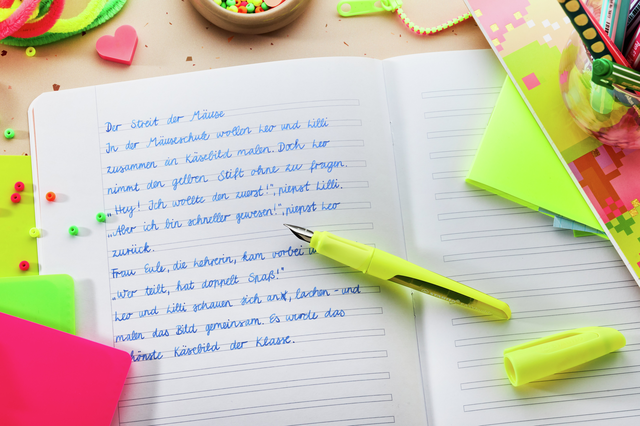 Der Streit der Mäuse
In der Mäuseschule wollen Leo und Lilli
zusammen ein Käsebild malen. Doch Leo
nimmt den gelben Stift ohne zu fragen.
„Hey! Ich wollte den zuerst!", piepst Lilli.
„Aber ich bin schneller gewesen!", piepst Leo
zurück.
Frau Eule, die Lehrerin, kam vorbei
„Wer teilt, hat doppelt Spaß!"
Leo und Lilli schauen sich an, lachen und
malen das Bild gemeinsam. Es wurde das
Käsebild der Klasse.